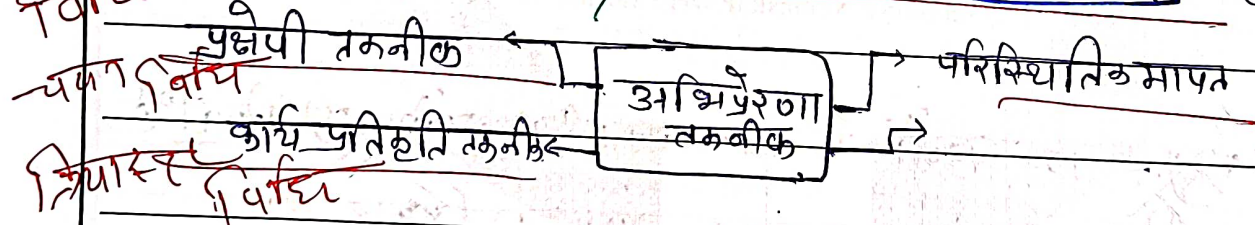 प्रक्षेपी तकनीक
चयन विधि
कार्य प्रतिकृति तकनीक
विधि
अभिप्रेरणा
तकनीक
परिस्थितिक मापन